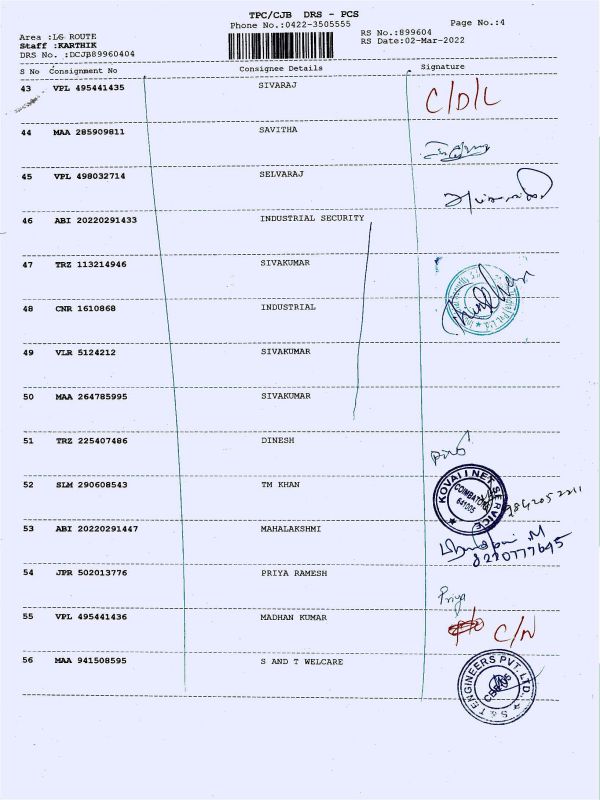 TPC/CJB DRS - PCS
Phone No.:0422-3505555
Page No.:4
Area :LG ROUTE
RS No.:899604
Staff :KARTHIK
RS Date:02-Mar-2022
DRS No. :DCJB89960404
S No Consignment No Consignee Details Signature
43 VPL 495441435 SIVARAJ C/D/L
44 MAA 285909811 SAVITHA
45 VPL 498032714 SELVARAJ
46 ABI 20220291433 INDUSTRIAL SECURITY
47 TRZ 113214946 SIVAKUMAR
48 CNR 1610868 INDUSTRIAL
49 VLR 5124212 SIVAKUMAR
50 MAA 264785995 SIVAKUMAR
51 TRZ 225407486 DINESH
52 SLM 290608543 TM KHAN
KOVAI I NET SERVICE
COIMBATORE
641005
53 ABI 20220291447 MAHALAKSHMI
8220777695
54 JPR 502013776 PRIYA RAMESH
Priya
55 VPL 495441436 MADHAN KUMAR C/N
56 MAA 941508595 S AND T WELCARE
S & T ENGINEERS PVT. LTD.